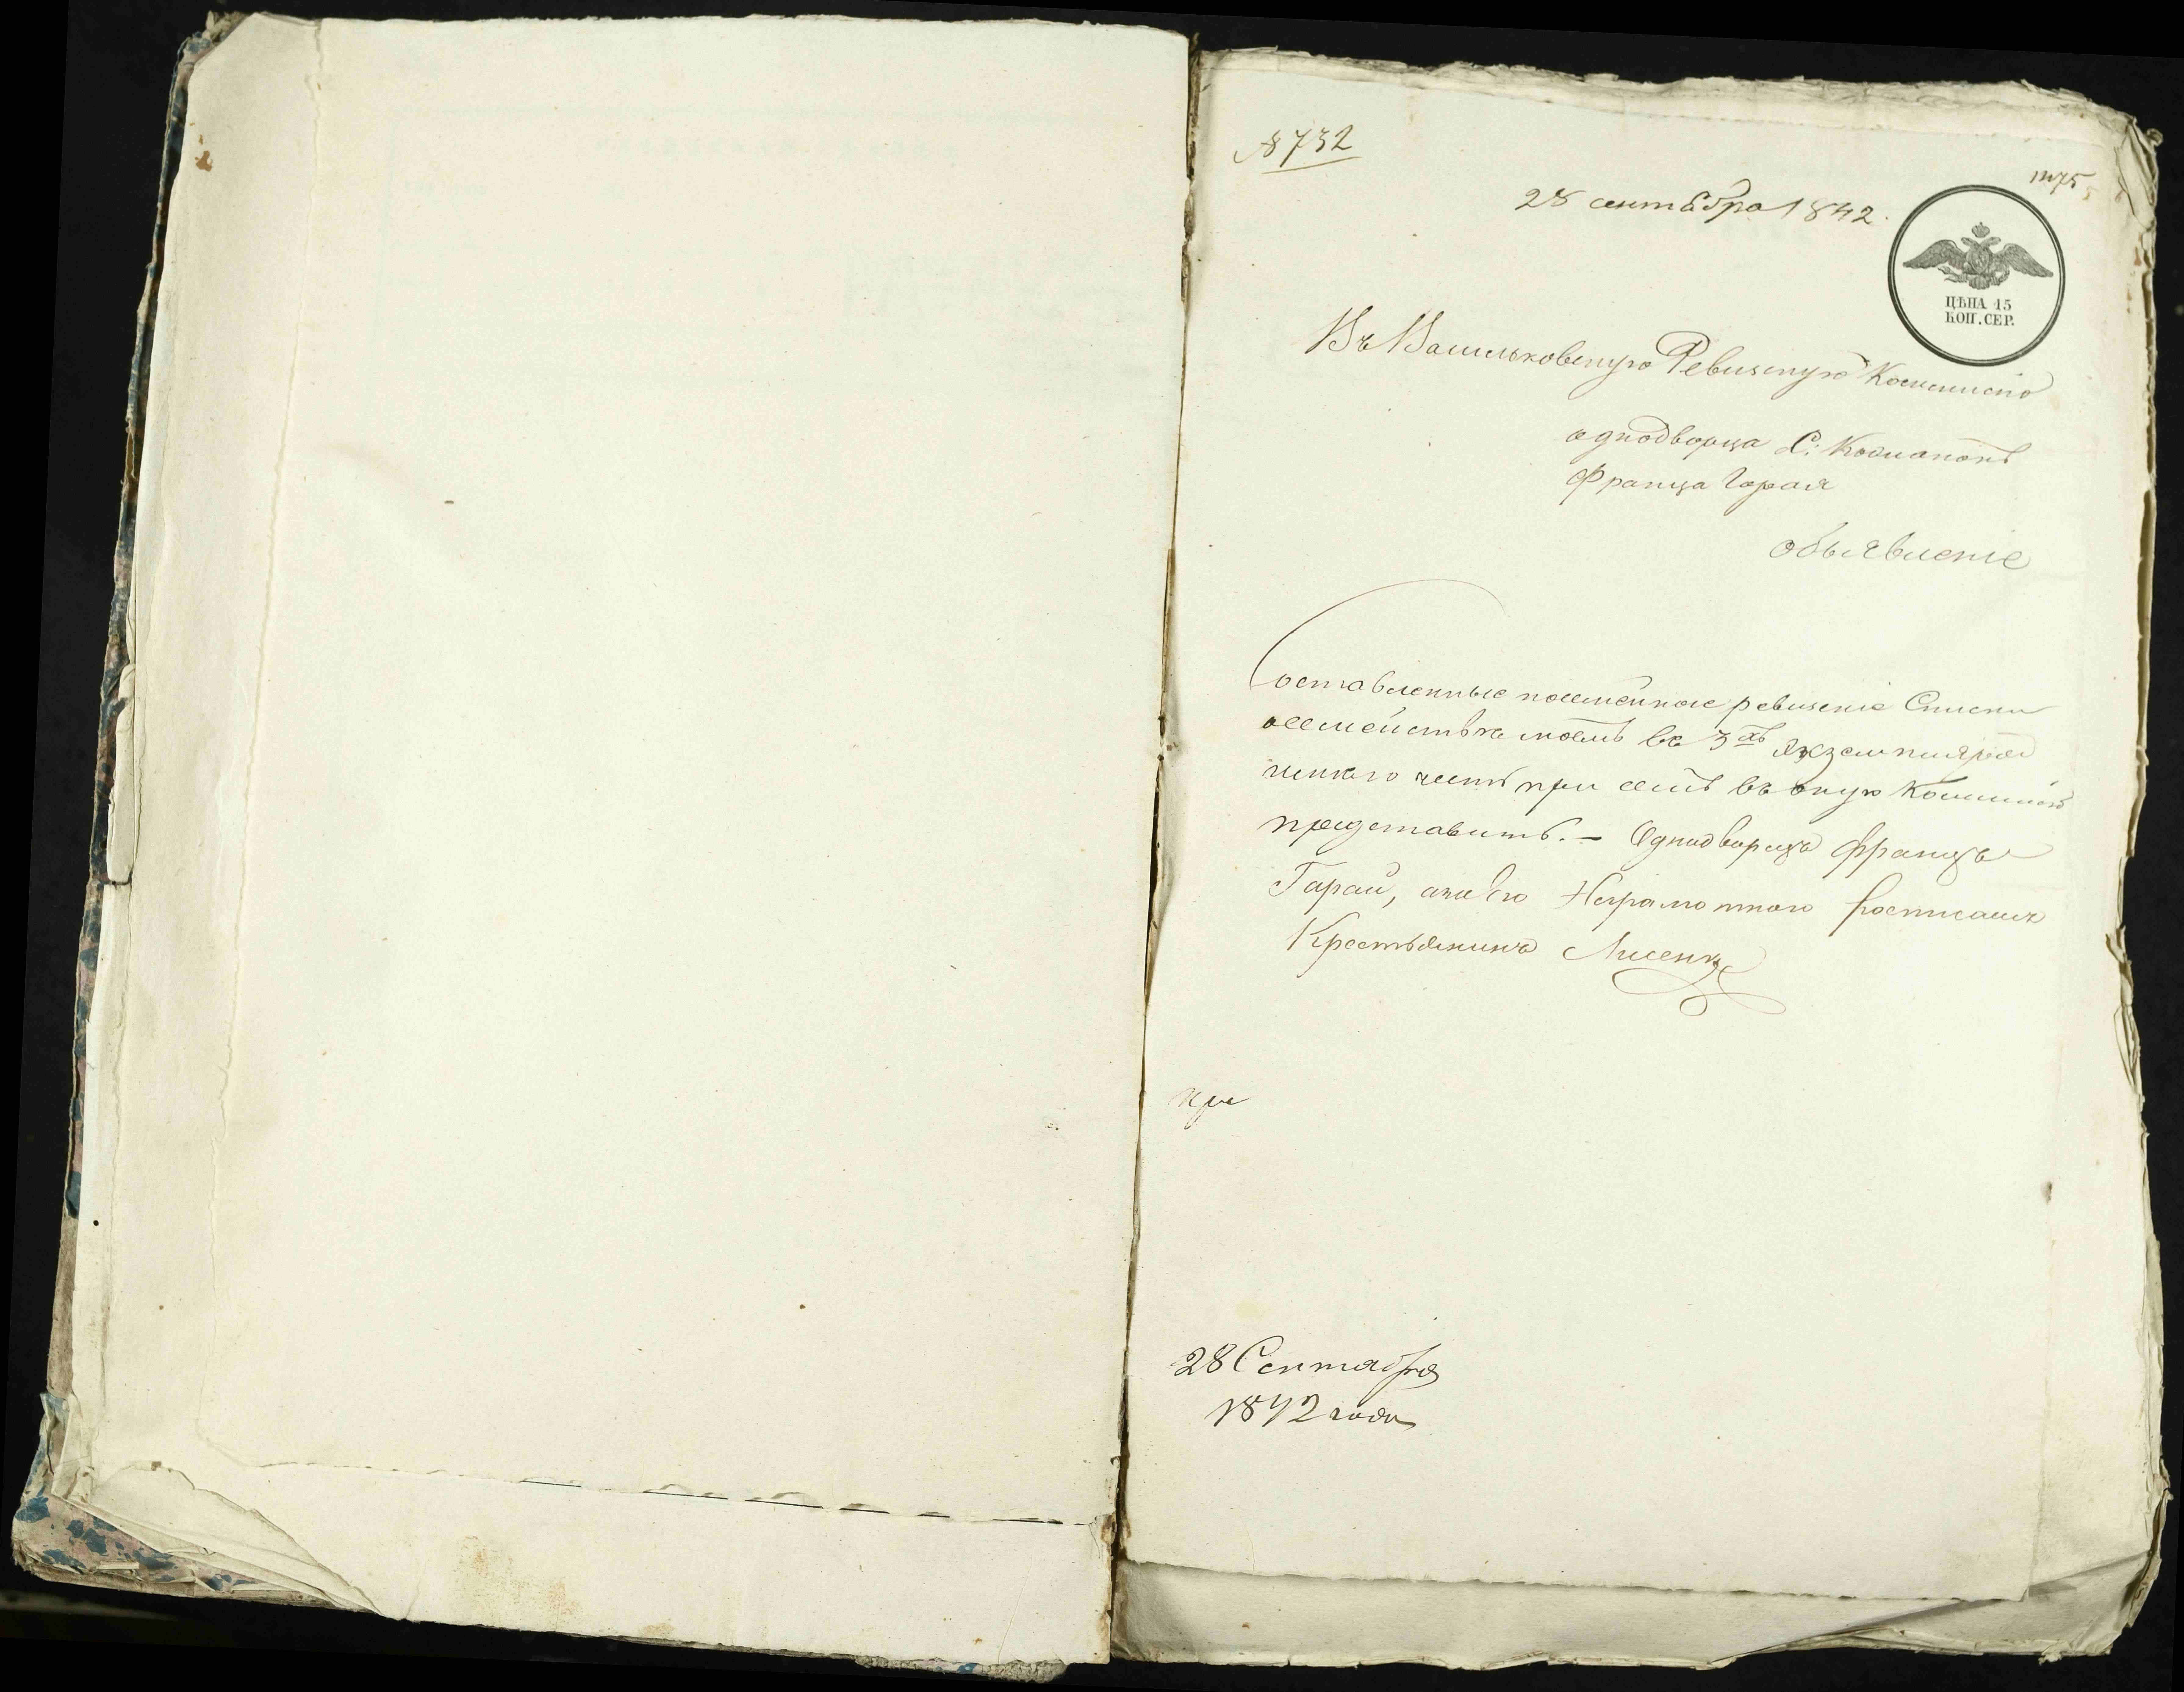 № 732
28 сентября 1842.
ЦѢНА 15
КОП. СЕР.
Въ Васильковскую Ревизскую Коммисію
однодворца С:
Франца Гарая
объявленіе
Составленные посемейные ревизскіе Списки
о семействѣ моемъ въ 3хъ экземплярахъ
имѣю честь при семъ въ оную Коммисію
представить. — Однодворецъ Францъ
Гарай, а за его Неграмотного росписался
Крестьянинъ Лисенко
при
28 Сентября
1842 года